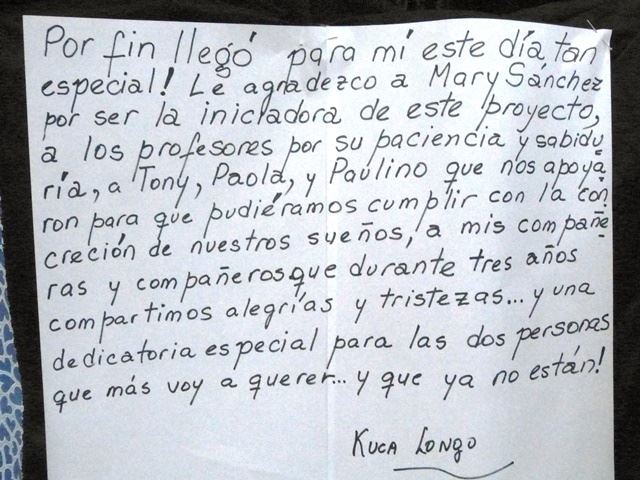 Por fin llegó para mí este día, tan
especial! Le agradezco a Mary Sánchez
por ser la iniciadora de este proyecto,
a los profesores por su paciencia y sabidu
ría, a Tony, Paola, y Paulino que nos apoya
ron para que pudiéramos cumplir con la con
creción de nuestros sueños, a mis compañe
ras y compañeros que durante tres años
compartimos alegrías y tristezas... y una
dedicatoria especial para las dos personas
que más voy a querer... y que ya no están!
Kuca Longo